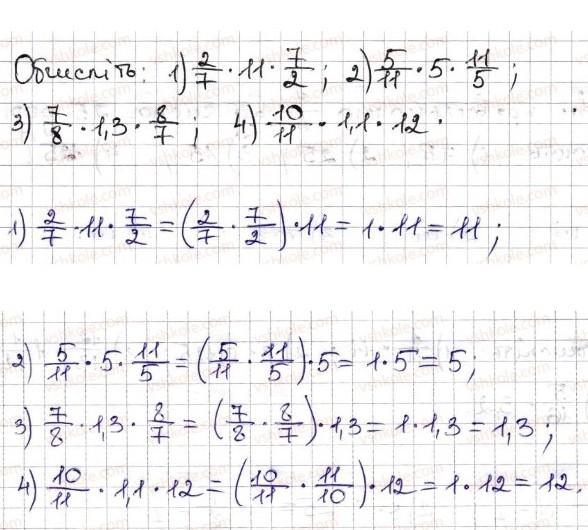 Обчисліть: 1) 2/7 · 11 · 7/2; 2) 5/11 · 5 · 11/5;
3) 7/8 · 1,3 · 8/7; 4) 10/11 · 1,1 · 12.
1) 2/7 · 11 · 7/2 = (2/7 · 7/2) · 11 = 1 · 11 = 11;
2) 5/11 · 5 · 11/5 = (5/11 · 11/5) · 5 = 1 · 5 = 5;
3) 7/8 · 1,3 · 8/7 = (7/8 · 8/7) · 1,3 = 1 · 1,3 = 1,3;
4) 10/11 · 1,1 · 12 = (10/11 · 11/10) · 12 = 1 · 12 = 12.